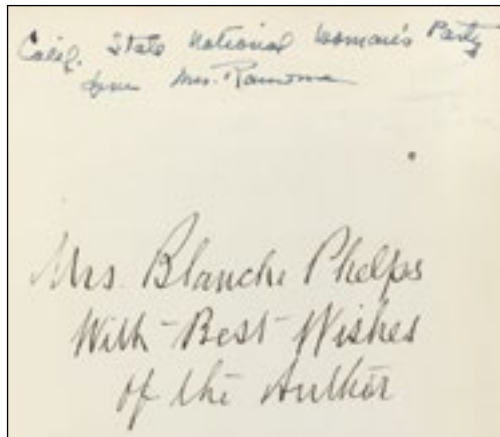 Calif. State National Woman's Party
Mrs. Ramona
Mrs. Blanche Phelps
With Best Wishes
of the Author